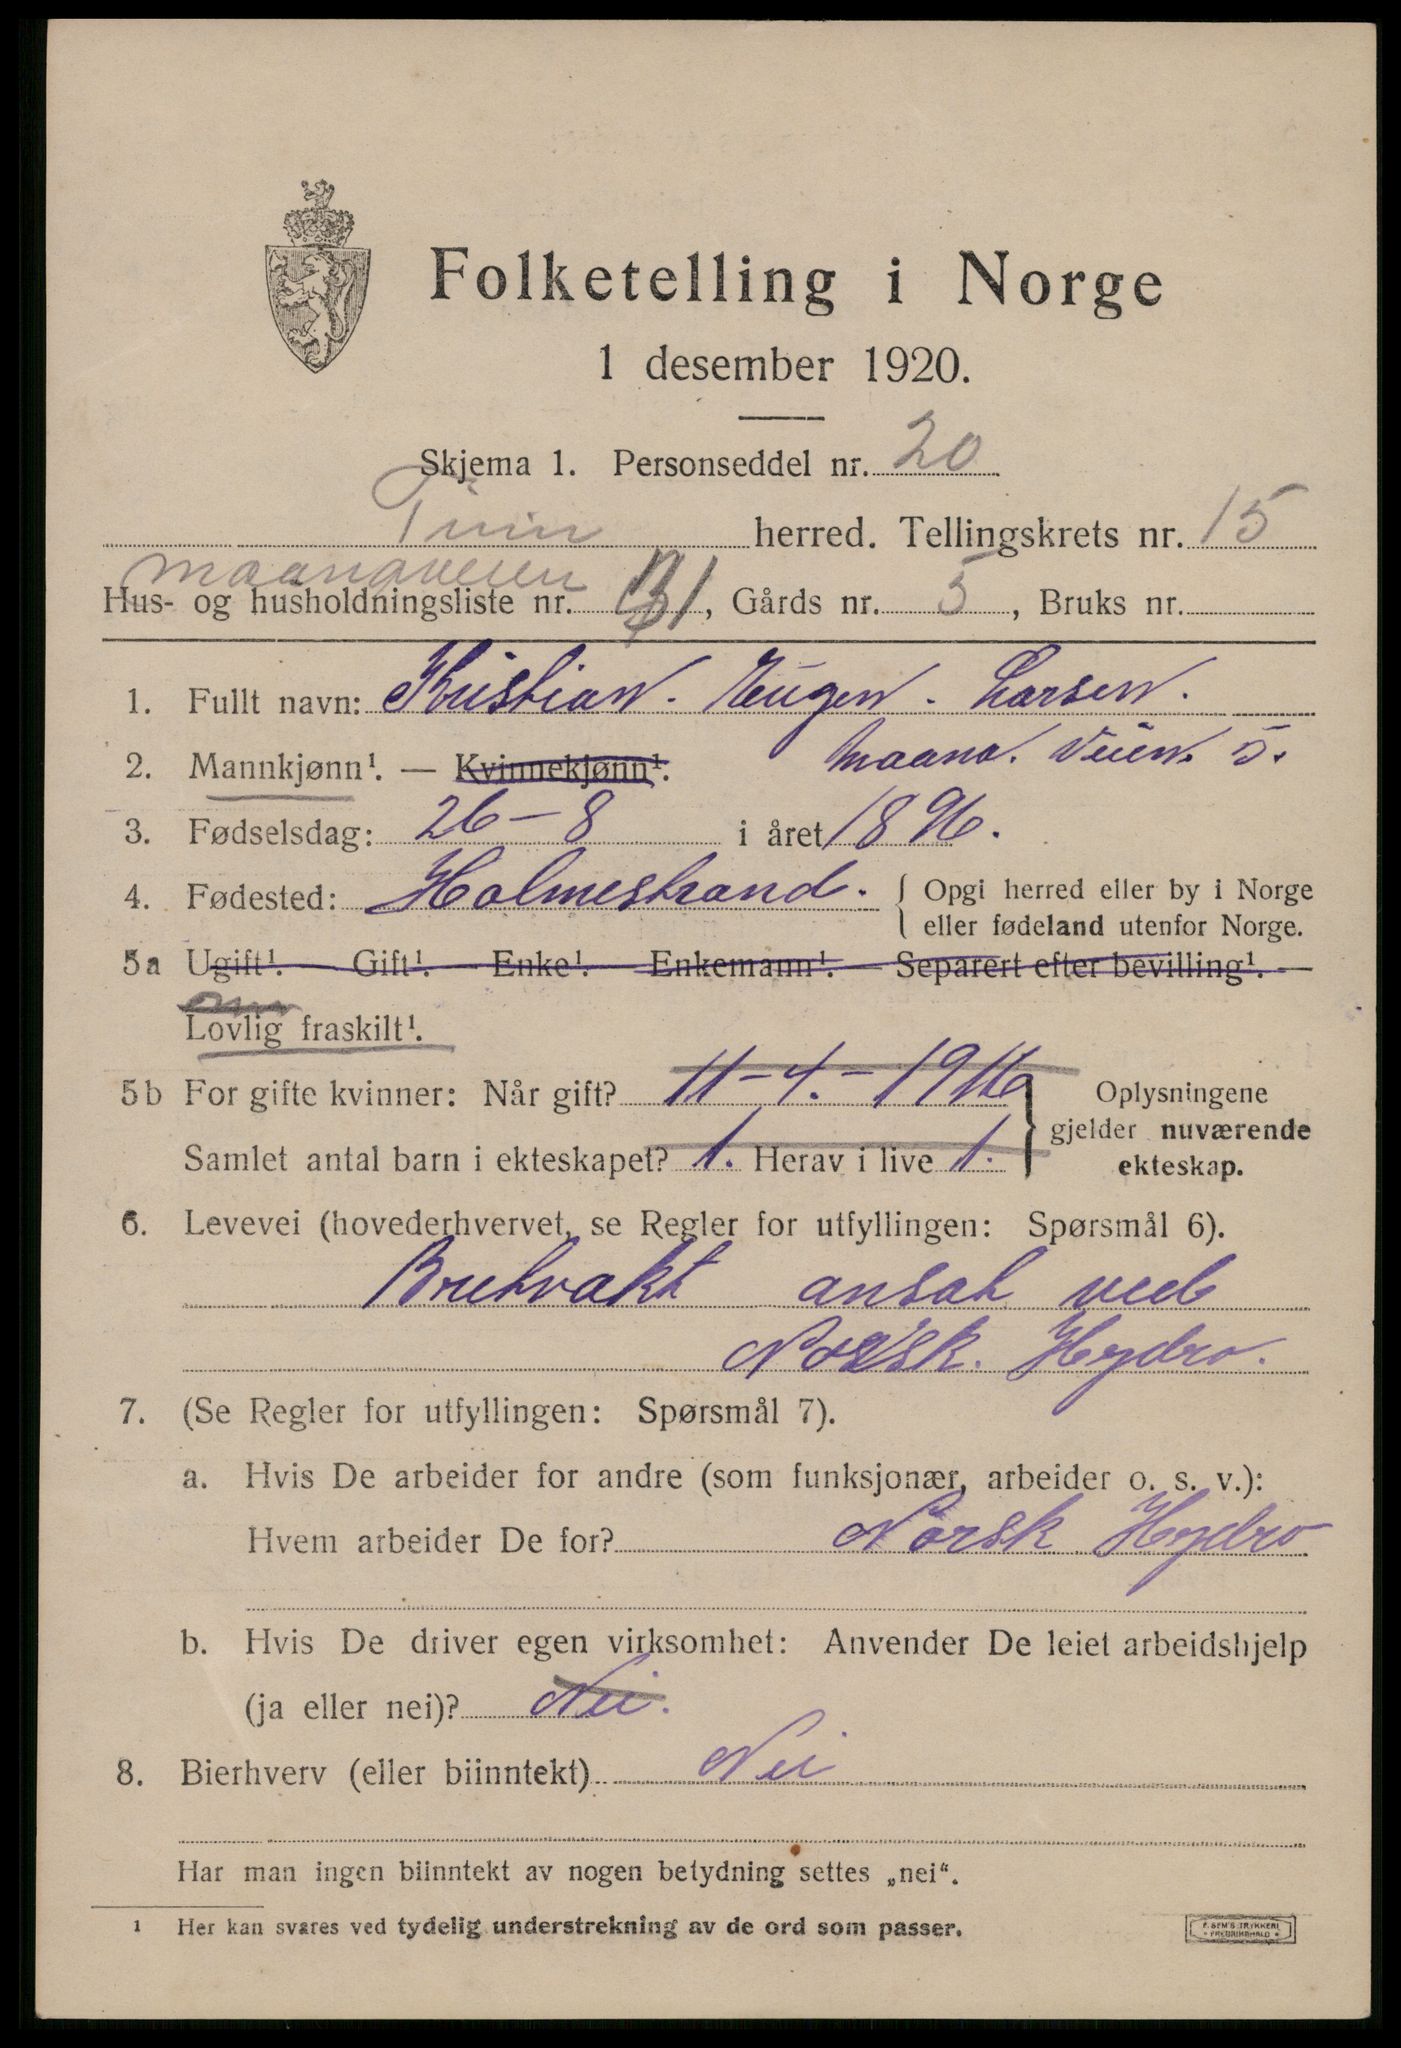 Folketelling i Norge
1 desember 1920.
Skjema 1. Personseddel nr. 20
Tinn herred. Tellingskrets nr. 15
Maanaveien
Hus- og husholdningsliste nr. 1, Gårds nr. 5, Bruks nr.
1. Fullt navn: Kristian. Eugen. Larsen.
2. Mannkjønn¹. — Kvinnekjønn¹. Maana. Veien. 5.
3. Fødselsdag: 26-8 i året 1896.
4. Fødested: Holmestrand. { Opgi herred eller by i Norge
eller fødeland utenfor Norge.
5a Ugift¹. — Gift¹. — Enke¹. — Enkemann¹. — Separert efter bevilling¹. —
Lovlig fraskilt¹.
5b For gifte kvinner: Når gift? 11-4.-1916 } Oplysningene
gjelder nuværende
Samlet antal barn i ekteskapet? 1. Herav i live 1. ekteskap.
6. Levevei (hovederhvervet, se Regler for utfyllingen: Spørsmål 6).
ansat ved
Norsk. Hydro.
7. (Se Regler for utfyllingen: Spørsmål 7).
a. Hvis De arbeider for andre (som funksjonær, arbeider o. s. v.):
Hvem arbeider De for? Norsk Hydro
b. Hvis De driver egen virksomhet: Anvender De leiet arbeidshjelp
(ja eller nei)? Nei.
8. Bierhverv (eller biinntekt) Nei
Har man ingen biinntekt av nogen betydning settes „nei“.
¹ Her kan svares ved tydelig understrekning av de ord som passer.
F. SEM'S TRYKKERI
* FREDRIKSHALD *